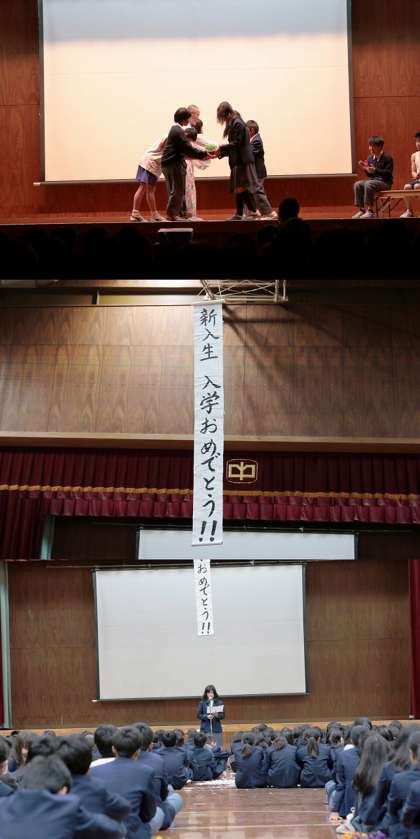 新入生 入学おめでとう!!
中
おめでとう!!